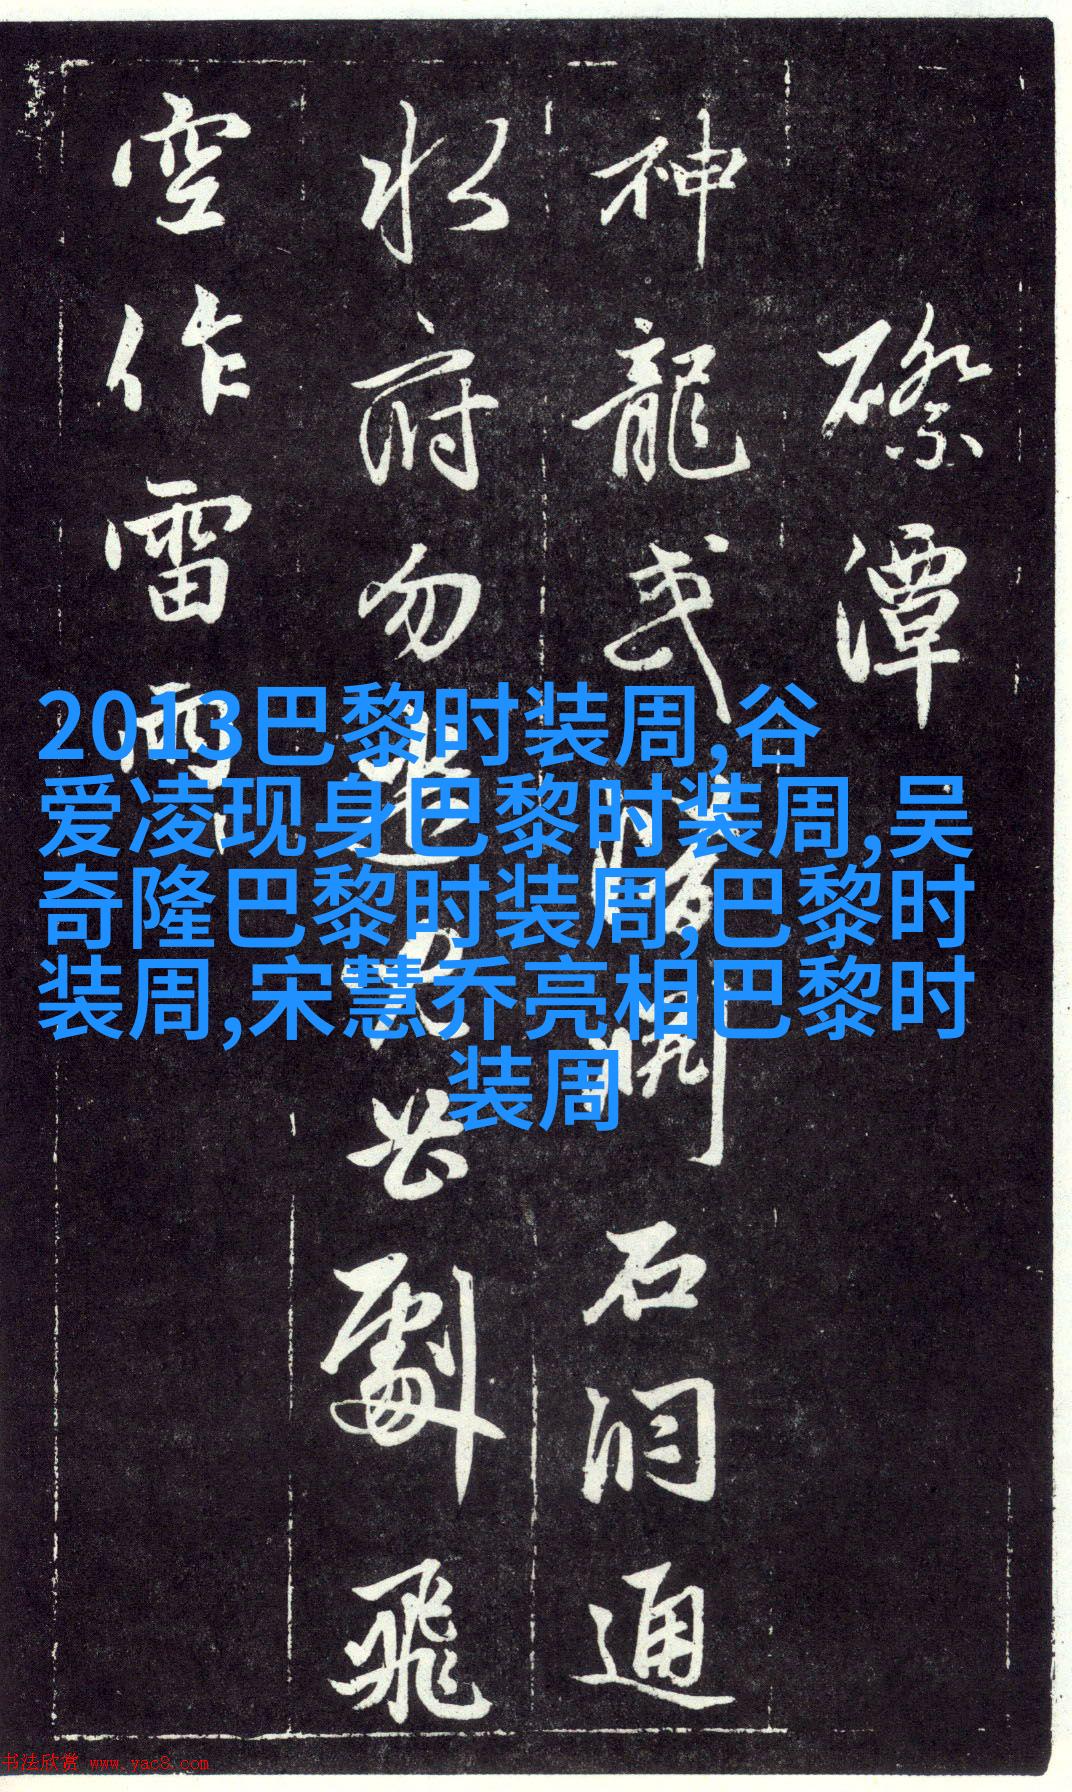 潭
神龍或
石洞通
水府勿
劇飛
空作雷雨
2013巴黎时装周,谷
爱凌现身巴黎时装周,吴
奇隆巴黎时装周,巴黎时
装周,宋慧乔亮相巴黎时
装周
书法欣赏 www.yac8.com